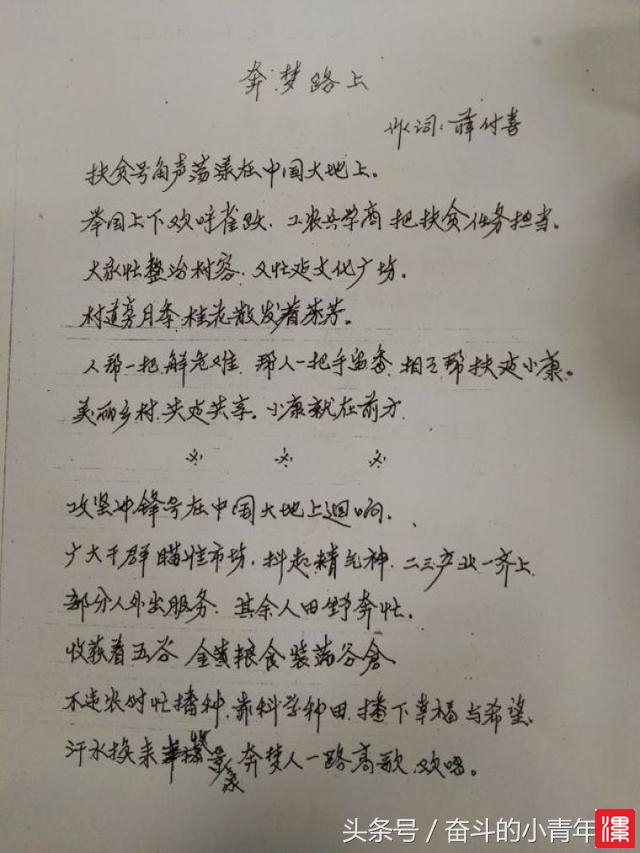 奔梦路上
作词：薛付喜
扶贫号角声荡漾在中国大地上。
举国上下欢呼雀跃，工农兵学商把扶贫任务担当。
大家忙整治村容，又忙建文化广场。
村道旁月季桂花散发着芬芳。
人帮一把解危难，帮人一把手留香，相互帮扶建小康。
美丽乡村，共建共享。小康就在前方
攻坚冲锋号在中国大地上迴响，
广大干群瞄准市场，抖起精气神，二三产业一齐上
部分人外出服务，其余人田野奔忙，
收获着五谷，金黄粮食装满谷仓
不违农时忙播种，靠科学种田，播下幸福与希望，
汗水换来 奔梦人一路高歌，欢唱。
头条号 / 奋斗的小青年